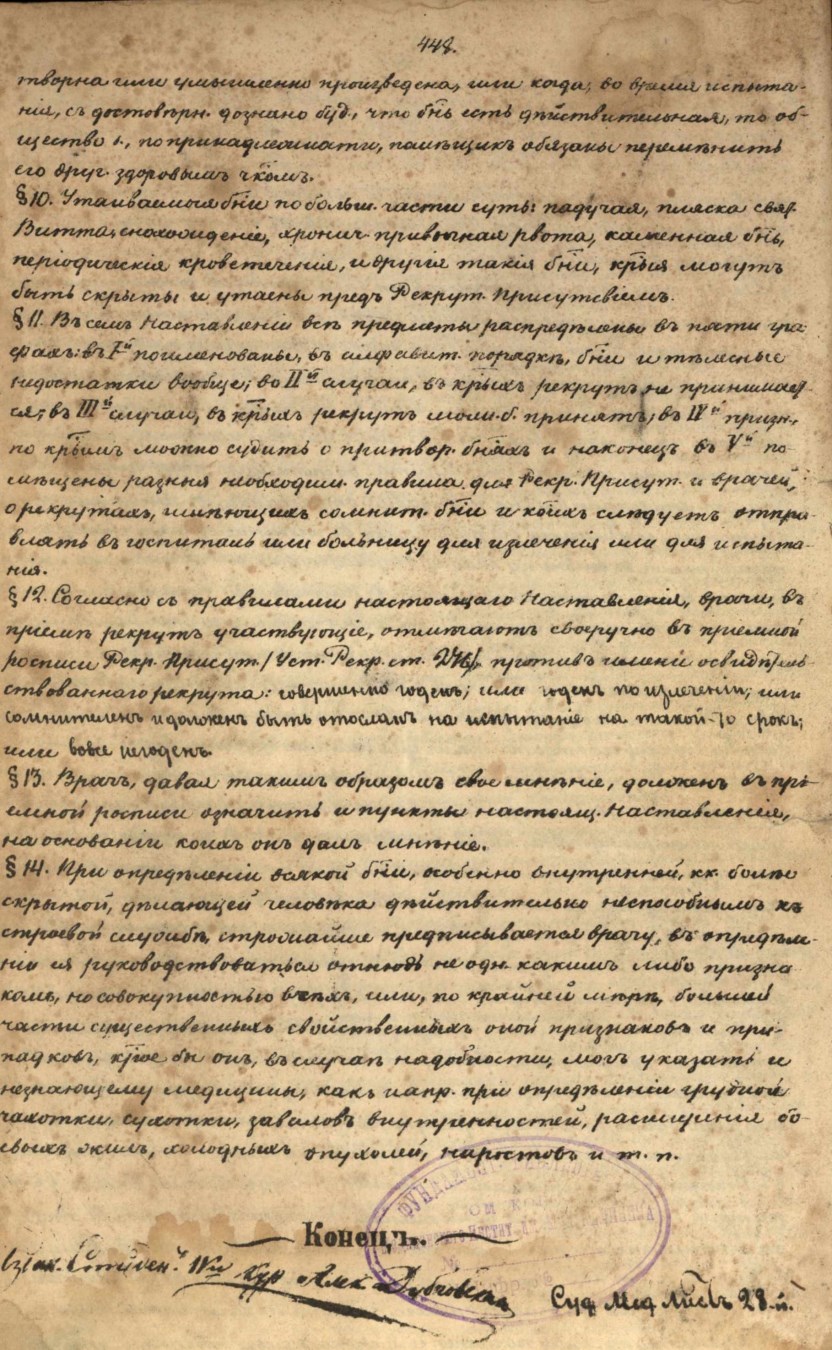 448.
творна или умышленно произведена, или когда, во время испыта-
нія, съ достовѣрн. дознано буд., что бнь есть дѣйствительная, то об-
щество ., по принадлежности, помѣщикъ обязаны перемѣнить
его друг. здоровымъ чкомъ.
§ 10. Утаиваемыя бни по больш. части суть: падучая, пляска свят.
Витта, снохожденіе, хронич. привычная рвота, каменная бнь,
періодическія кровотеченія, и другія такія бни, крыя могутъ
быть скрыты и утаены предъ Рекрут. Присутсвіемъ.
§ 11. Въ семъ Наставленіи всѣ предметы распредѣлены въ пяти гра-
фахъ: въ Iй поименованы, въ алфавит. порядкѣ, бни и тѣлесные
недостатки вообще; во IIй случаи, въ крыхъ рекрутъ не принимает-
ся; въ IIIй случаи, въ крыхъ рекрутъ мож. б. принятъ; въ IVй призн.,
по крымъ можно судить о притвор. бняхъ и наконецъ въ Vй по-
мѣщены разныя необходим. правила для Рекр. Присут. и врачей,
о рекрутахъ, имѣющихъ сомнит. бни и коихъ слѣдуетъ отпра-
влять въ госпиталь или больницу для излеченія или для испыта-
нія.
§ 12. Согласно съ правилами настоящаго Наставленія, врачи, въ
пріемѣ рекрутъ участвующіе, отмѣчаютъ своеручно въ пріемной
росписи Рекр. Присут. / Уст. Рекр. ст. / противъ имени освидѣтель-
ствованнаго рекрута: совершенно годенъ; или годенъ по излеченіи; или
сомнителенъ и долженъ быть отосланъ на испытаніе на такой-то срокъ;
или вовсе негоденъ.
§ 13. Врачъ, давая такимъ образомъ свое мнѣніе, долженъ въ прі-
емной росписи означить и пункты настоящ. Наставленія,
на основаніи коихъ онъ далъ мнѣніе.
§ 14. При опредѣленіи всякой бни, особенно внутренней, кк. болѣе
скрытой, дѣлающей человѣка дѣйствительно неспособнымъ къ
строевой службѣ, строжайше предписывается врачу, въ опредѣле-
ніи ея руководствоваться отнюдь не одн. какимъ либо призна
комъ, но совокупностью всѣхъ, или, по крайней мѣрѣ, большей
части существенныхъ свойственныхъ оной признаковъ и при-
падковъ, крые бы онъ, въ случаѣ надобности, могъ указать и
незнающему медицины, какъ напр. при опредѣленіи грудной
чахотки, сухотки, заваловъ внутренностей, расширенія бо-
евыхъ жилъ, холодныхъ опухолей, наростовъ и т. п.
Конецъ.
IVго кур Алек
Суд Мед Листъ 28-й.